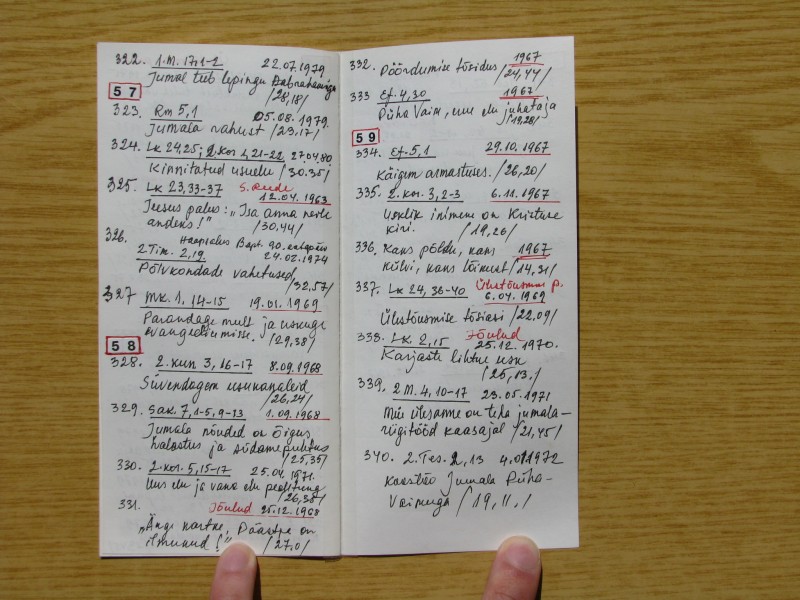 322. 1.M. 17,1-2 22.07.1979
Jumal teeb lepingu Aabrahamiga
/28,18/
57
323. Rm 5,1 05.08.1979.
Jumala rahust /23,17/
324. Lk 24,25; 2.Kor 1,21-22 27.04.80
Kinnitatud usuelu /30.35/
325. Lk 23,33-37 S. Reede
12.04.1963
Jeesus palus: „Isa anna neile
andeks!" /30,44/
326. Haapsalus Bapt. 90.
2 Tim. 2,19 24.02.1974
Põlvkondade vahetused
/32,57/
327 Mk. 1, 14-15 19.01.1969
Parandage meelt ja uskuge
evangeeliumisse. /29,38/
58
328. 2.Kun 3, 16-17 8.09.1968
Süvendagem usukanaleid
/26,24/
329. Sak. 7,1-5,9-13 1.09.1968
Jumala nõuded on õigus
halastus ja südamepuhtus
/25,35/
330. 2.Kor. 5,15-17 25.04.1971.
Uus elu ja vana elu pealtung
/26,38/
331. Jõulud 25.12.1968
„Ärge kartke, Päästja on
ilmunud!" /27.0/
332. Pöördumise tõsidus 1967
/24,44/
333 Ef. 4,30 1967
Püha Vaim, uue elu juhataja
/19,28/
59
334. Ef. 5,1 29.10.1967
Käigem armastuses. /26,20/
335. 2.Kor. 3,2-3 6.11.1967
Usklik inimene on Kristuse
kiri. /19,26/
336. Kans põldu, kans 1967
külvi, kans lõikust /14,31/
337. Lk 24,36-40 Ülestõusmise p.
6.04.1969
Ülestõusmise tõsiasi /22,09/
338. Lk. 2,15 Jõulud
25.12.1970.
Karjaste lihtne usk
/25,13./
339. 2 M. 4, 10-17 23.05.1971
Meie ülesanne on teha jumala-
riigitööd kaasajal /21,45/
340. 2.Tes. 2,13 4.01.1972
Kaastöö Jumala Püha-
Vaimuga /19,11./